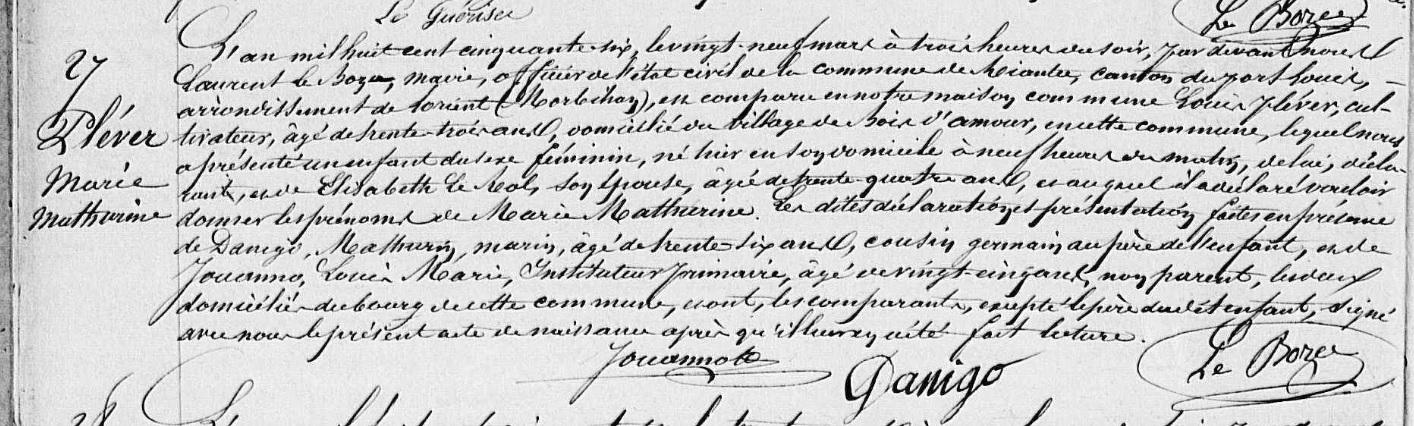 Le Guérisec
Le Bozec
27
Pléver
Marie
Mathurine
L'an mil huit cent cinquante-six, le vingt-neuf mars à trois heures du soir, par devant nous
Laurent Le Bozec, maire, officier de l'état civil de la commune de Riantec, canton du port Louis,
arrondissement de Lorient (Morbihan), est comparu en notre maison commune Louis Pléver, cul-
tivateur, âgé de trente-trois ans, domicilié du village de Bois d'amour, en cette commune, lequel nous
a présenté un enfant du sexe féminin, né hier en son domicile à neuf heures du matin, de lui, décla-
rant, et de Elisabeth Le Mol, son épouse, âgée de trente-quatre ans, et auquel il a déclaré vouloir
donner les prénoms de Marie Mathurine. Les dites déclaration et présentation faites en présence
de Danigo, Mathurin, marin, âgé de trente-six ans, cousin germain au père de l'enfant, et de
Jouanno, Louis Marie, Instituteur primaire, âgé de vingt-cinq ans, non parent, les deux
domiciliés du bourg de cette commune, et ont, les comparants, excepté le père dudit enfant, signé
avec nous le présent acte de naissance après qu'il leur en a été fait lecture.
Jouanno
Danigo
Le Bozec
28